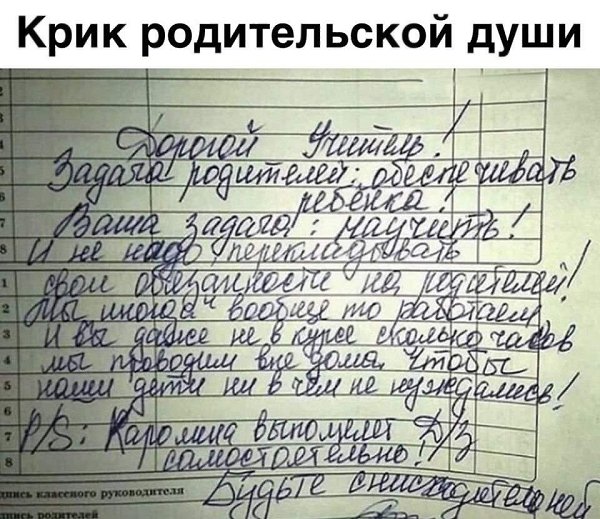 Крик родительской души
Дорогой Учитель!
Задача родителей: обеспечивать
ребёнка!
Ваша задача: научить!
И не надо перекладывать
свои обязанности на родителей!
Мы иногда вообще то работаем
И вы даже не в курсе сколько часов
мы проводим вне дома, чтобы
наши дети ни в чём не нуждались!
P/S: Каролина выполняет Д/З
самостоятельно!
Будьте снисходительней
пись классного руководителя
пись родителей
1
2
3
4
5
6
7
8